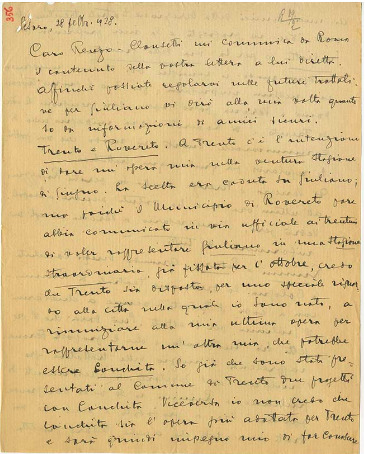 356
R 29/2
Pesaro, 28 febbr. 1928.
Caro Perego - Clausetti mi comunica da Roma
il contenuto della vostra lettera a lui diretta.
Affinché possiate regolarvi nelle future trattati-
ve per Giuliano vi dirò alla mia volta quanto
so da informazioni di amici sicuri.
Trento e Rovereto. A Trento c'è l'intenzione
di dare un'opera mia nella ventura stagione
di giugno. La scelta era caduta su Giuliano;
ma poiché il Municipio di Rovereto pare
abbia comunicato in via ufficiale ai Trentini
di voler rappresentare Giuliano in una stagione
straordinaria, già fissata per l'ottobre, credo
che Trento sia disposta, per uno speciale riguar-
do alla città nella quale io sono nato, a
rinunziare alla mia ultima opera per
rappresentarne un'altra mia, che potrebbe
essere Conchita. So già che sono stati pre-
sentati al Comune di Trento due progetti
con Conchita. Viceversa io non credo che
Conchita sia l'opera più adatta per Trento
e sarà quindi impegno mio di far conoscere